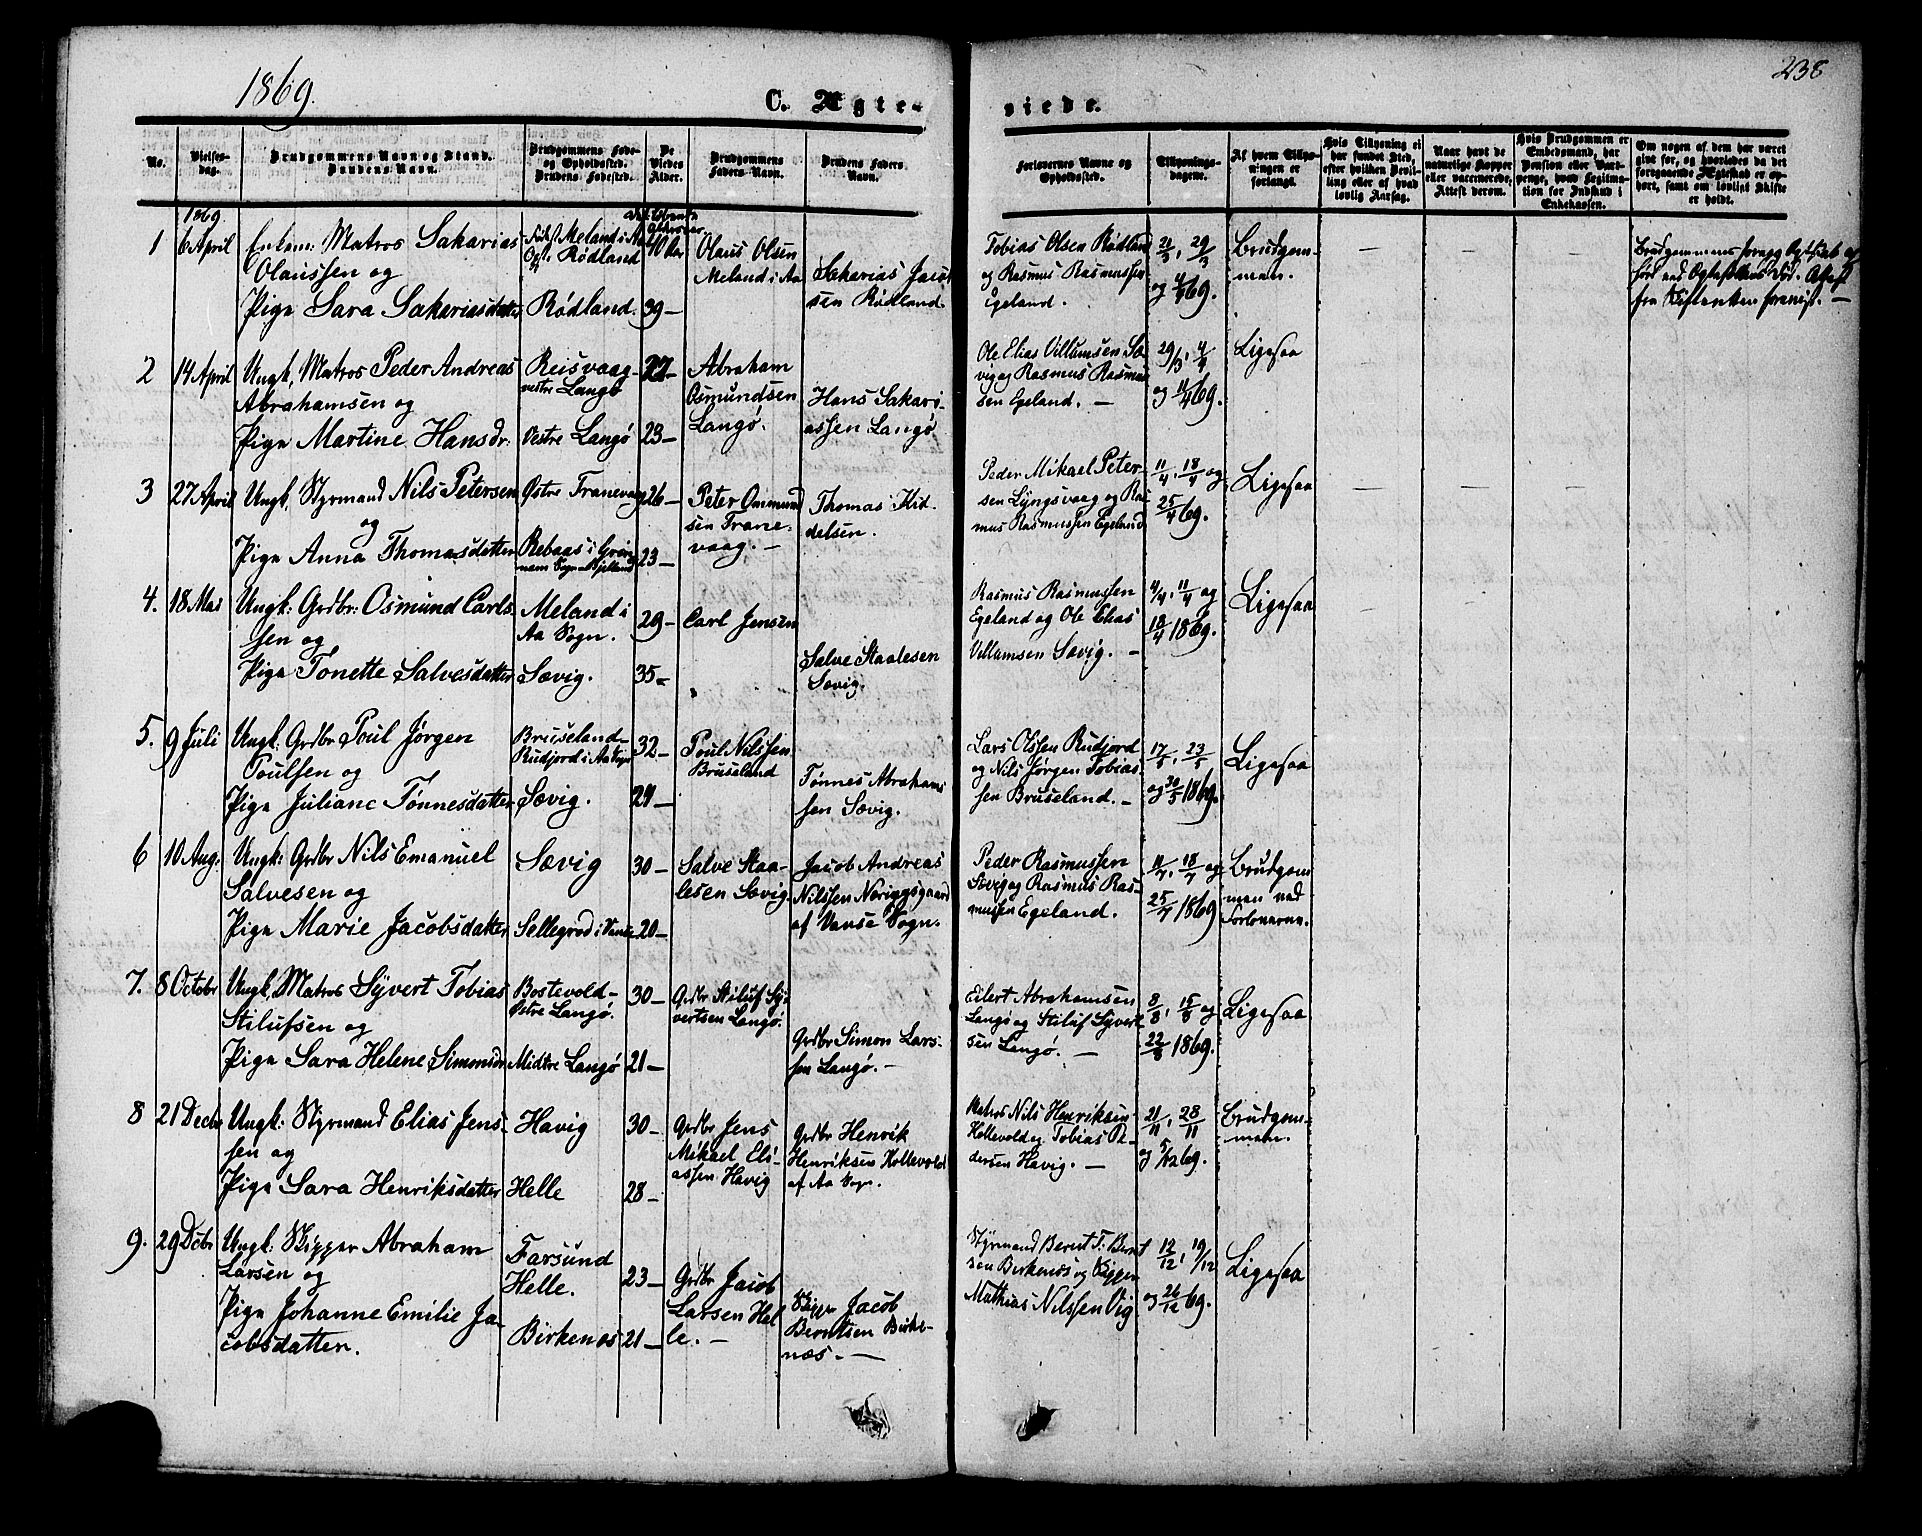 1869.
238
C. Ægte-
viede.
No.
Vielses-
dag.
Brudgommens Navn og Stand.
Brudens Navn.
Brudgommens Føde-
og Opholdssted.
Brudens Fødested.
De
Viedes
Alder.
Brudgommens
Faders Navn.
Brudens Faders
Navn.
Forlovernes Navne og
Opholdssted.
Tillysnings-
dagene.
Af hvem Tillys-
ningen er
forlangt.
Hvis Tillysning ei
har fundet Sted,
efter hvilken Bevil-
ling eller af hvad
lovlig Aarsag.
Naar havt de
naturlige Kopper
eller vaccinerede,
Attest derom.
Hvis Brudgommen er
Embedsmand, har
Pension eller Var-
penge, hvad Legitima-
tion for Indskud i
Enkekassen.
Om nogen af dem har været
givt for, og hvorledes da det
foregaaende Ægteskab er op-
hørt, samt om lovligt Skifte
er holdt.
1869.
1 6 April Enkem: Matros Sakarias
Olaussen og
Pige Sara Sakariasdatter
Født Meland i Aa
Rødland
Rødland.
40
39 —
Olaus Olsen
Meland i Aa
Sakarias Jacob
sen Rødland.
Tobias Olsen Rødland
og Rasmus Rasmussen
Egeland.
21/3, 29/3
og 4/4 69.
Brudgom-
men.
Brudgommens foreg Egteskab op
hørt ved Død. Attest
fra
2 14 April Ungk, Matros Peder Andreas
Abrahamsen og
Pige Martine Hansdr.
Reisvaag
vestre Langø
Vestre Langø
27 —
23 —
Abraham
Osmundsen
Langø.
Hans Sakari-
assen Langø
Ole Elias Villumsen Sæ
vig og Rasmus Rasmus
sen Egeland. —
29/3, 4/4
og 11/4 69.
Ligesaa
3 27 April Ungk, Styrmand Nils Petersen
og
Pige Anna Thomasdatter
Østre Tranevaag
Rebaas i Grin
nem Sogn Bjelland
26 —
23 —
Peter Ommund
sen Trane-
vaag. —
Thomas Kid-
delsen.
Peder Mikael Peter-
sen Lyngsvaag og Ras
mus Rasmussen Egeland
11/4, 18/4 og
25/4 69.
Ligesaa
4. 18 Mai Ungk: Grdbr: Osmund Carls-
sen og
Pige Tonette Salvesdatter
Meland i
Aa Sogn.
Sævig.
29 —
35 —
Carl Jensen
Salve Staalesen
Sævig.
Rasmus Rasmussen
Egeland og Ole Elias
Villumsen Sævig. —
4/4, 11/4 og
18/4 1869.
Ligesaa
5. 9 Juli Ungk: Grdbr Poul Jørgen
Poulsen og
Pige Juliane Tønnesdatter
Bruseland —
Rudjord i Aa Sogn
Sævig.
32 —
24 —
Poul Nilssen
Bruseland
Tønnes Abraham
sen Sævig.
Lars Olssen Rudjord
og Nils Jørgen Tobias-
sen Bruseland. —
17/5, 23/5
og 30/5 1869.
Ligesaa
6 10 Aug: Ungk: Grdbr Nils Emanuel
Salvesen og
Pige Marie Jacobsdatter
Sævig
Sellegrod i Vanse
30 —
20 —
Salve Staa-
lesen Sævig.
Jacob Andreas
Nilssen Noriggsgaard
af Vanse Sogn.
Peder Rasmussen
Sævig og Rasmus Ras-
mussen Egeland.
11/7, 18/7 og
25/7 1869
Brudgom
men ved
Forloverne.
7. 8 Octobr Ungk, Matros Syvert Tobias
Stilufsen og
Pige Sara Helene Simonsdr
Bostevold —
Østre Langø.
Midtre Langø
30 —
21 —
Grdbr Stiluf Sy-
vertsen Langø.
Grdbr Simon Lars-
sen Langø. —
Eilert Abrahamsen
Langø og Stiluf Syvert
sen Langø. —
8/8, 15/8 og
22/8 1869.
Ligesaa
8 21 Decbr Ungk: Styrmand Elias Jens-
sen og
Pige Sara Henriksdatter
Havig
Helle
30 —
28 —
Grdbr Jens
Mikael Eli-
assen Havig
Grdbr Henrik
Henriksen Kollevold
af Aa Sogn.
Matros Nils Henriksen
Kollevold og Tobias Pe-
dersen Havig. —
21/11, 28/11
og 5/12 69.
Brudgom-
men.
9. 29 Dcbr Ungk: Skipper Abraham
Larsen og
Pige Johanne Emilie Ja-
cobsdatter.
Farsund
Helle.
Birkenes
23 —
21 —
Grdbr Jacob
Larsen Hel-
le. —
Skipper Jacob
Berntsen Birke-
næs. —
Styrmand Bernt T: Bernt
sen Birkenes og Skipper
Mathias Nilssen Vig
12/12, 19/12
og 26/12 69.
Ligesaa